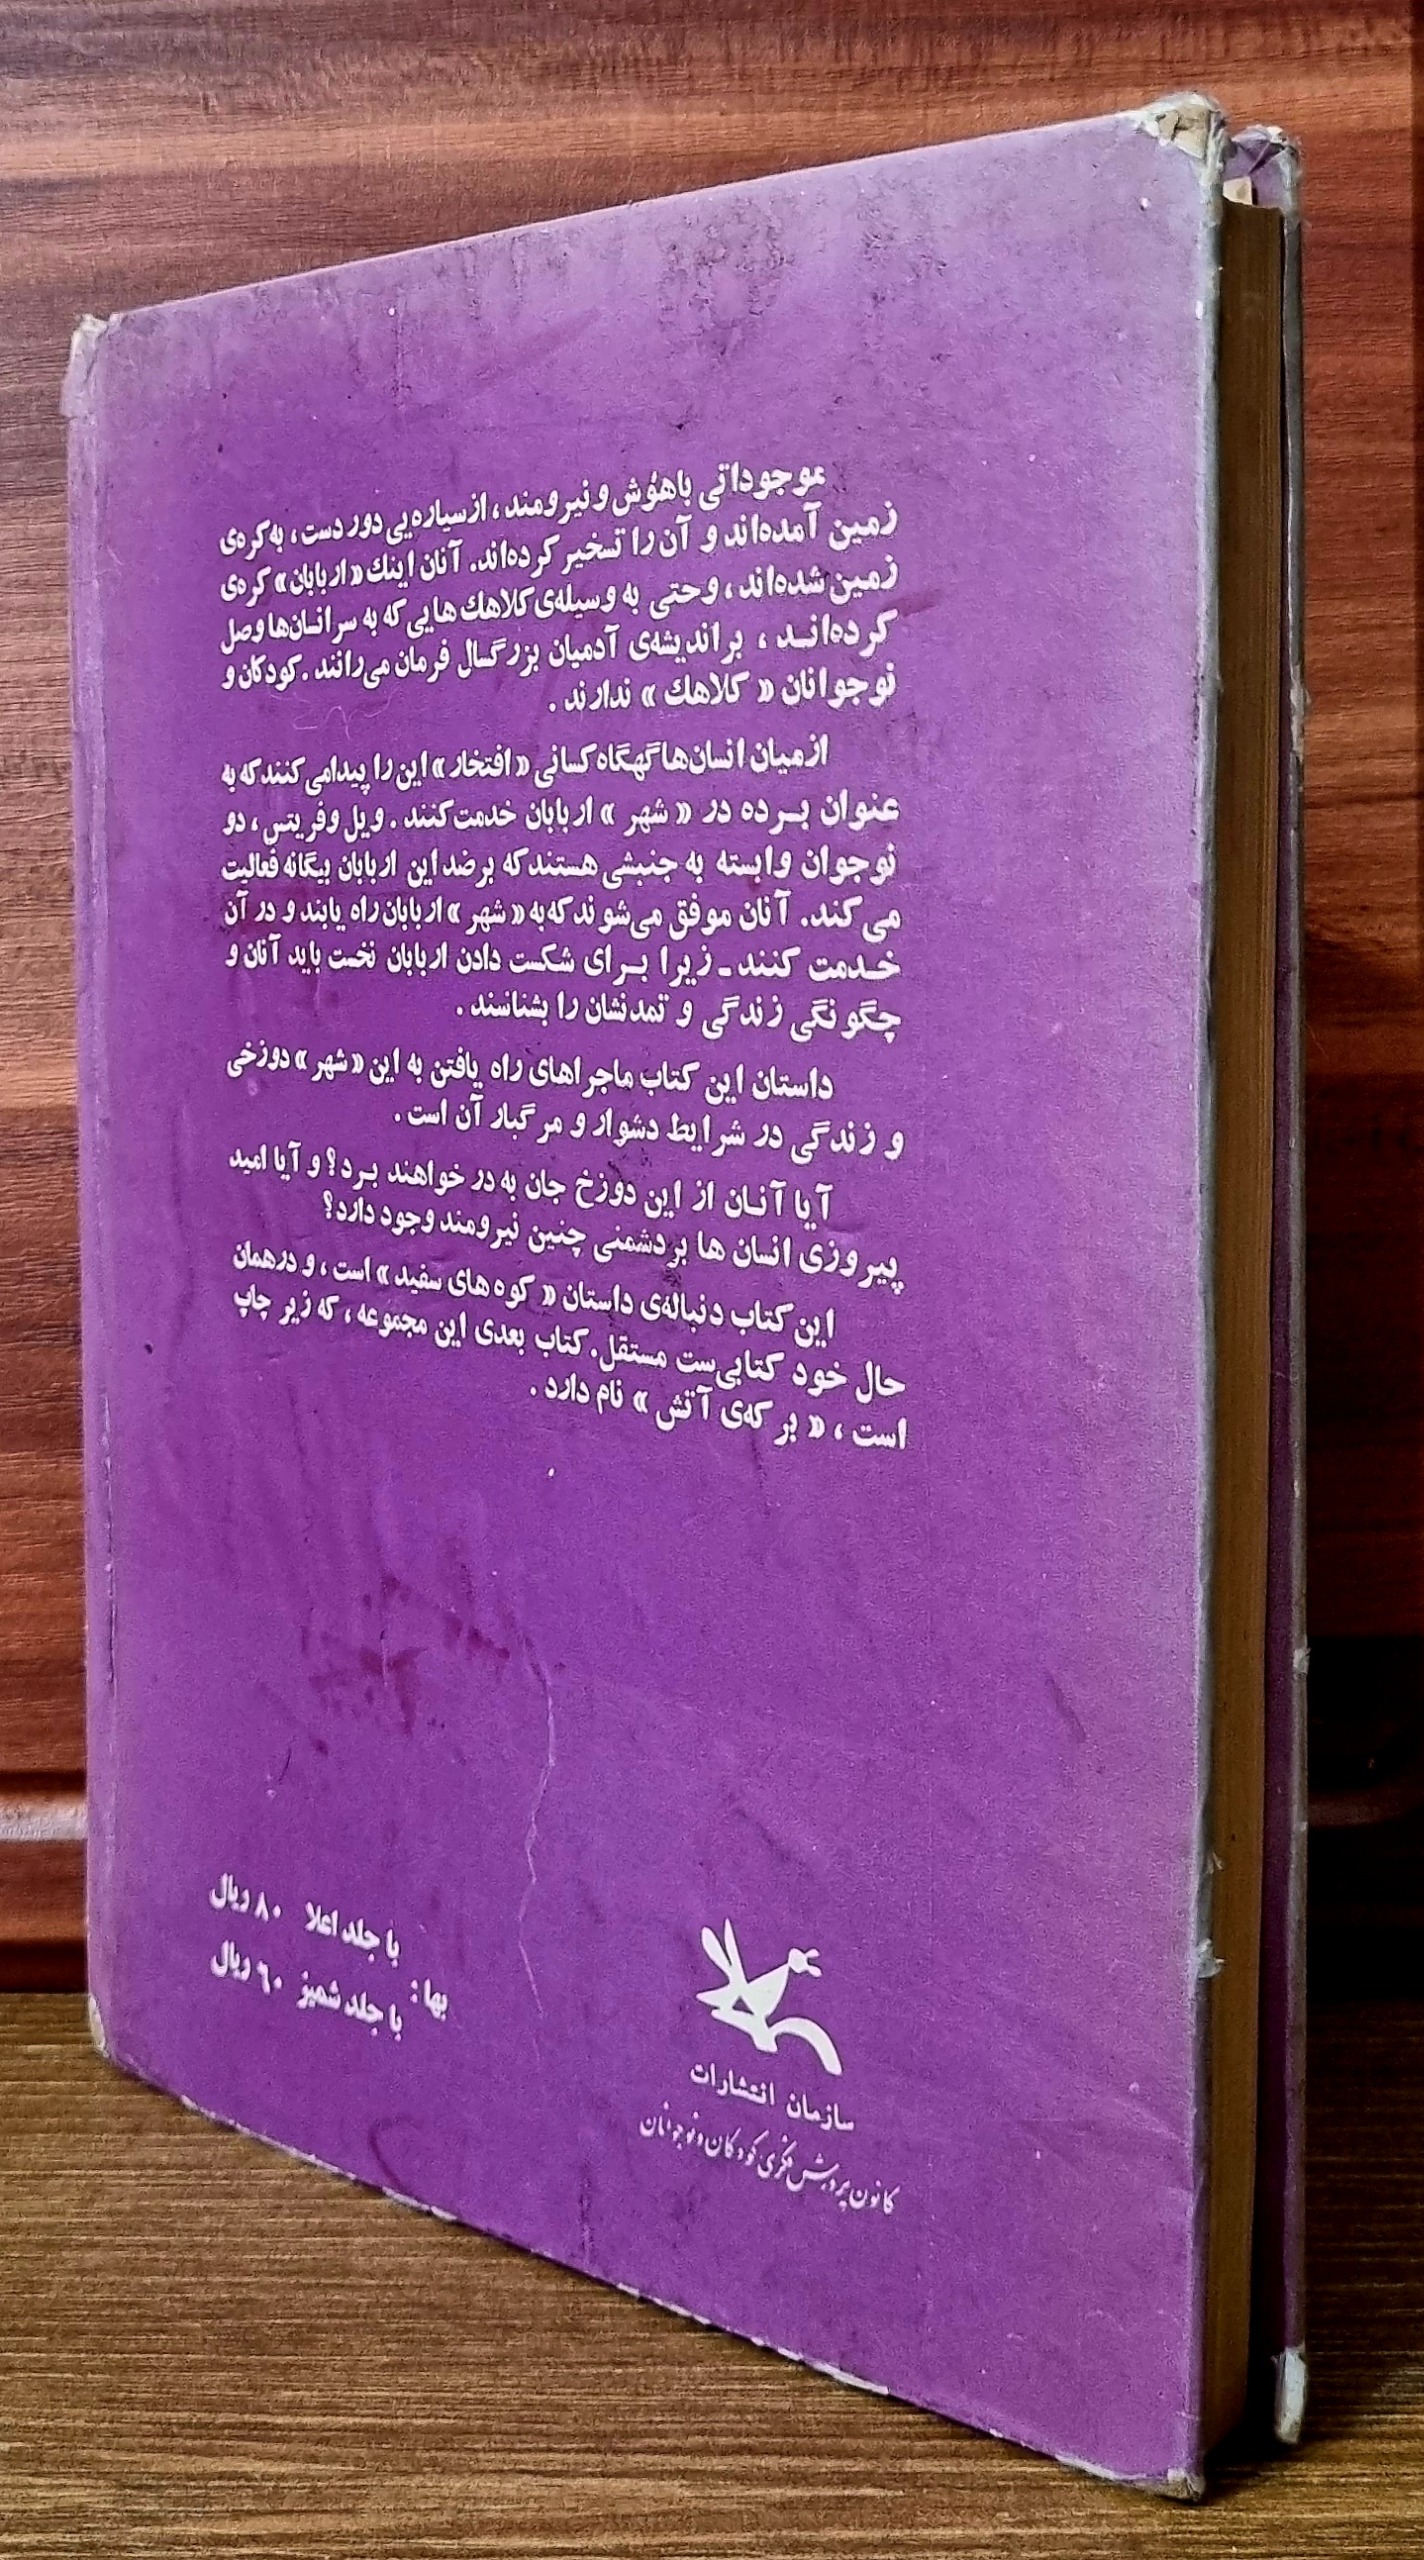 موجوداتی باهوش و نیرومند، از سیاره‌یی دوردست، به کره‌ی
زمین آمده‌اند و آن را تسخیر کرده‌اند. آنان اینك «اربابان» کره‌ی
زمین شده‌اند، وحتی به وسیله‌ی کلاهك هایی که به سر انسان‌ها وصل
کرده‌انـد، براندیشه‌ی آدمیان بزرگسال فرمان می‌رانند. کودکان و
نوجوانان «کلاهك» ندارند.
ازمیان انسان‌ها گهگاه کسانی «افتخار» این را پیدا می کنند که به
عنوان بـرده در «شهر» اربابان خدمت کنند. ویل وفریتس، دو
نوجوان وابسته به جنبشی هستند که بر ضد این اربابان بیگانه فعالیت
می کند. آنان موفق می‌شوند که به «شهر» اربابان راه یابند و در آن
خـدمت کنند ـ زیرا بـرای شکست دادن اربابان نخست باید آنان و
چگونگی زندگی و تمدنشان را بشناسند.
داستان این کتاب ماجراهای راه یافتن به این «شهر» دوزخی
و زندگی در شرایط دشوار و مرگبار آن است.
آیا آنـان از این دوزخ جان به در خواهند بـرد؟ و آیا امید
پیروزی انسان ها بردشمنی چنین نیرومند وجود دارد؟
این کتاب دنباله‌ی داستان «کوه های سفید» است، و درهمان
حال خود کتابی‌ست مستقل. کتاب بعدی این مجموعه، که زیر چاپ
است، «برکه‌ی آتش» نام دارد.
بها:
با جلد اعلا ۸۰ ریال
با جلد شمیز ۶۰ ریال
سازمان انتشارات
کانون پرورش فکری کودکان و نوجوانان